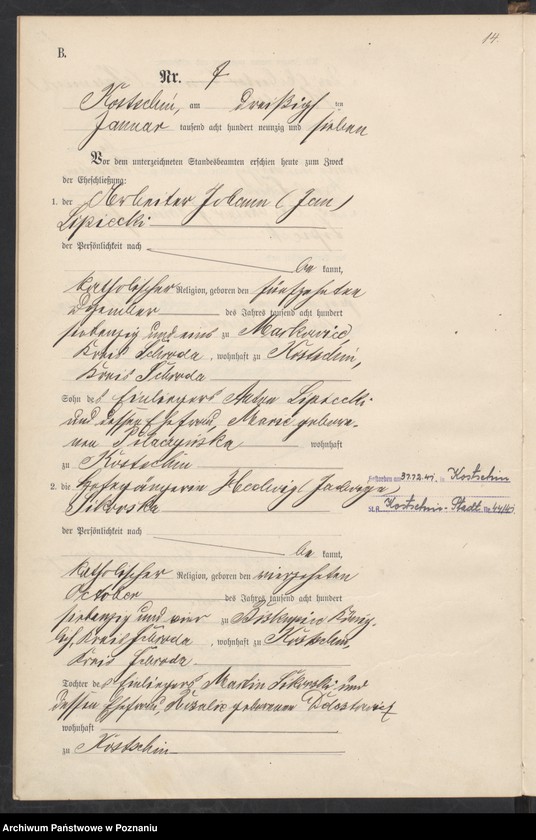 14.
B.
Nr.
Kostschin, am dreißigsten
Januar tausend acht hundert neunzig und sieben
Vor dem unterzeichneten Standesbeamten erschien heute zum Zweck
der Eheschließung:
1. der Arbeiter Johann (Jan)
Lisiecki
der Persönlichkeit nach
be kannt,
katholischer Religion, geboren den fünfzehnten
Dezember des Jahres tausend acht hundert
siebenzig und eins zu Markowice,
Kreis Schroda, wohnhaft zu Kostschin,
Kreis Schroda
Sohn des Einliegers Lisiecki
und dessen Ehefrau, Marie gebore-
nen wohnhaft
zu Kostschin
2. die Hedwig (Jadwiga)
Sikorska
Gestorben am 31.12.41 in Kostschin
St.A. Kostschin-Stadt Nr.
der Persönlichkeit nach
be kannt,
katholischer Religion, geboren den vierzehnten
October des Jahres tausend acht hundert
siebenzig und vier zu König-
lich, Kreis Schroda, wohnhaft zu Kostschin,
Kreis Schroda
Tochter des Einliegers Martin Sikorski und
dessen Ehefrau, Rosalie geborenen
wohnhaft
zu Kostschin
Archiwum Państwowe w Poznaniu